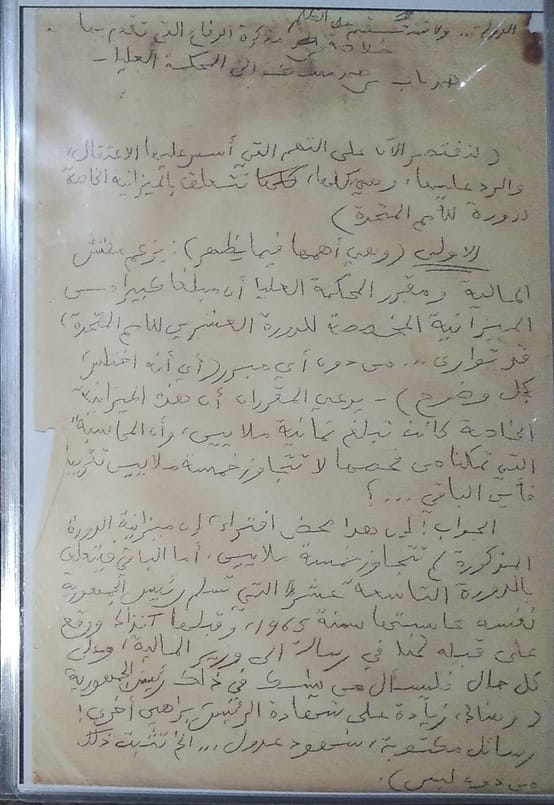 الدولة ... ولا تستقيم على الظلم
خلاصة من مذكرة الدفاع التي تقدم بها
من إلى المحكمة العليا -
(لنقتصر الآن على التهم التي أسس عليها الاعتقال،
والرد عليها، وهي كلها، تتعلق بالميزانية الخاصة
لدورة للأمم المتحدة)
الأولى (وهي أهمها فيما يظهر): يزعم مفتش
المالية ومقرر المحكمة العليا أن مبلغا كبيرا من
الميزانية المخصصة للدورة العشرين للأمم المتحدة،
قد توارى ... من دون أي مبرر (أي أنه اختلس
بكل وضوح) - يدعي المقرران أن هذه الميزانية
الخاصة كانت تبلغ ثمانية ملايين، وأن المحاسبة
التي تمكنا من فحصها لا تتجاوز خمسة ملايين تقريبا
فأين الباقي ...؟
الجواب: إن هذا محض افتراء، إن ميزانية الدورة
المذكورة لم تتجاوز خمسة ملايين، أما الباقي فيتعلق
بالدورة التاسعة عشرة التي تسلم رئيس الجمهورية
نفسه محاسبتها سنة 1965، وقبلها آنذاك ووقع
على قبله لها في رسالة إلى وزير المالية، وعلى
كل حال فليسأل من يشك في ذلك رئيس الجمهورية
(وهناك، زيادة على شهادة الرئيس براهين أخرى:
رسائل مكتوبة، شهود عدول ... الخ تثبت ذلك
من دون لبس).